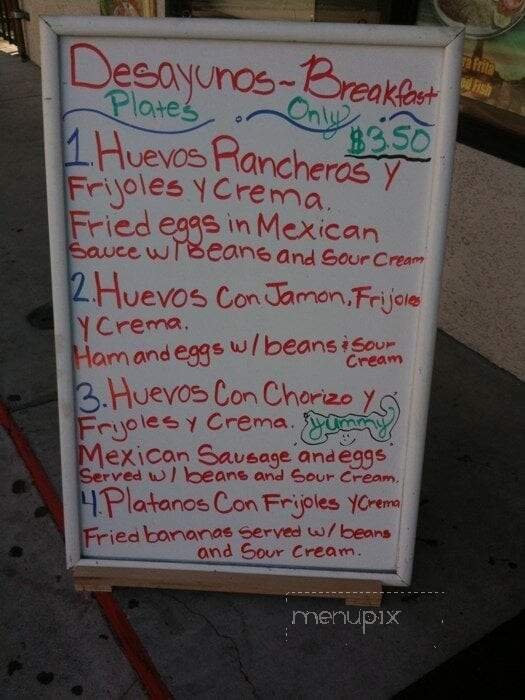 Desayunos ~ Breakfast
Plates Only
$3.50
1. Huevos Rancheros y
Frijoles y Crema.
Fried eggs in Mexican
Sauce w/ Beans and Sour Cream
2. Huevos Con Jamon, Frijoles
y Crema.
Ham and eggs w/ beans & Sour
Cream
3. Huevos Con Chorizo y
Frijoles y Crema. yummy
Mexican Sausage and eggs
Served w/ beans and Sour Cream.
4. Platanos Con Frijoles y Crema
Fried bananas served w/ beans
and Sour Cream.
a Frita
ed Fish
menupix